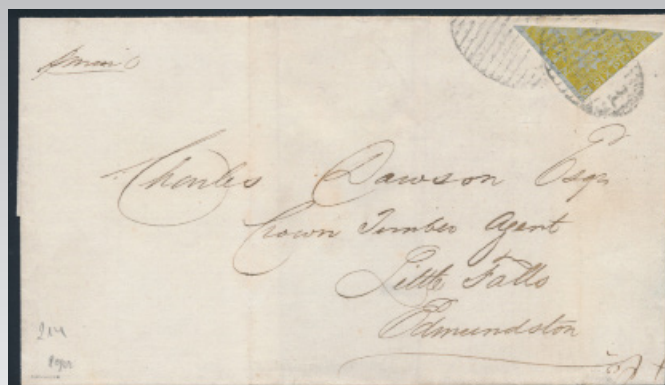 Charles Dawson Esqr
Crown Timber Agent
Little Falls
Edmundston